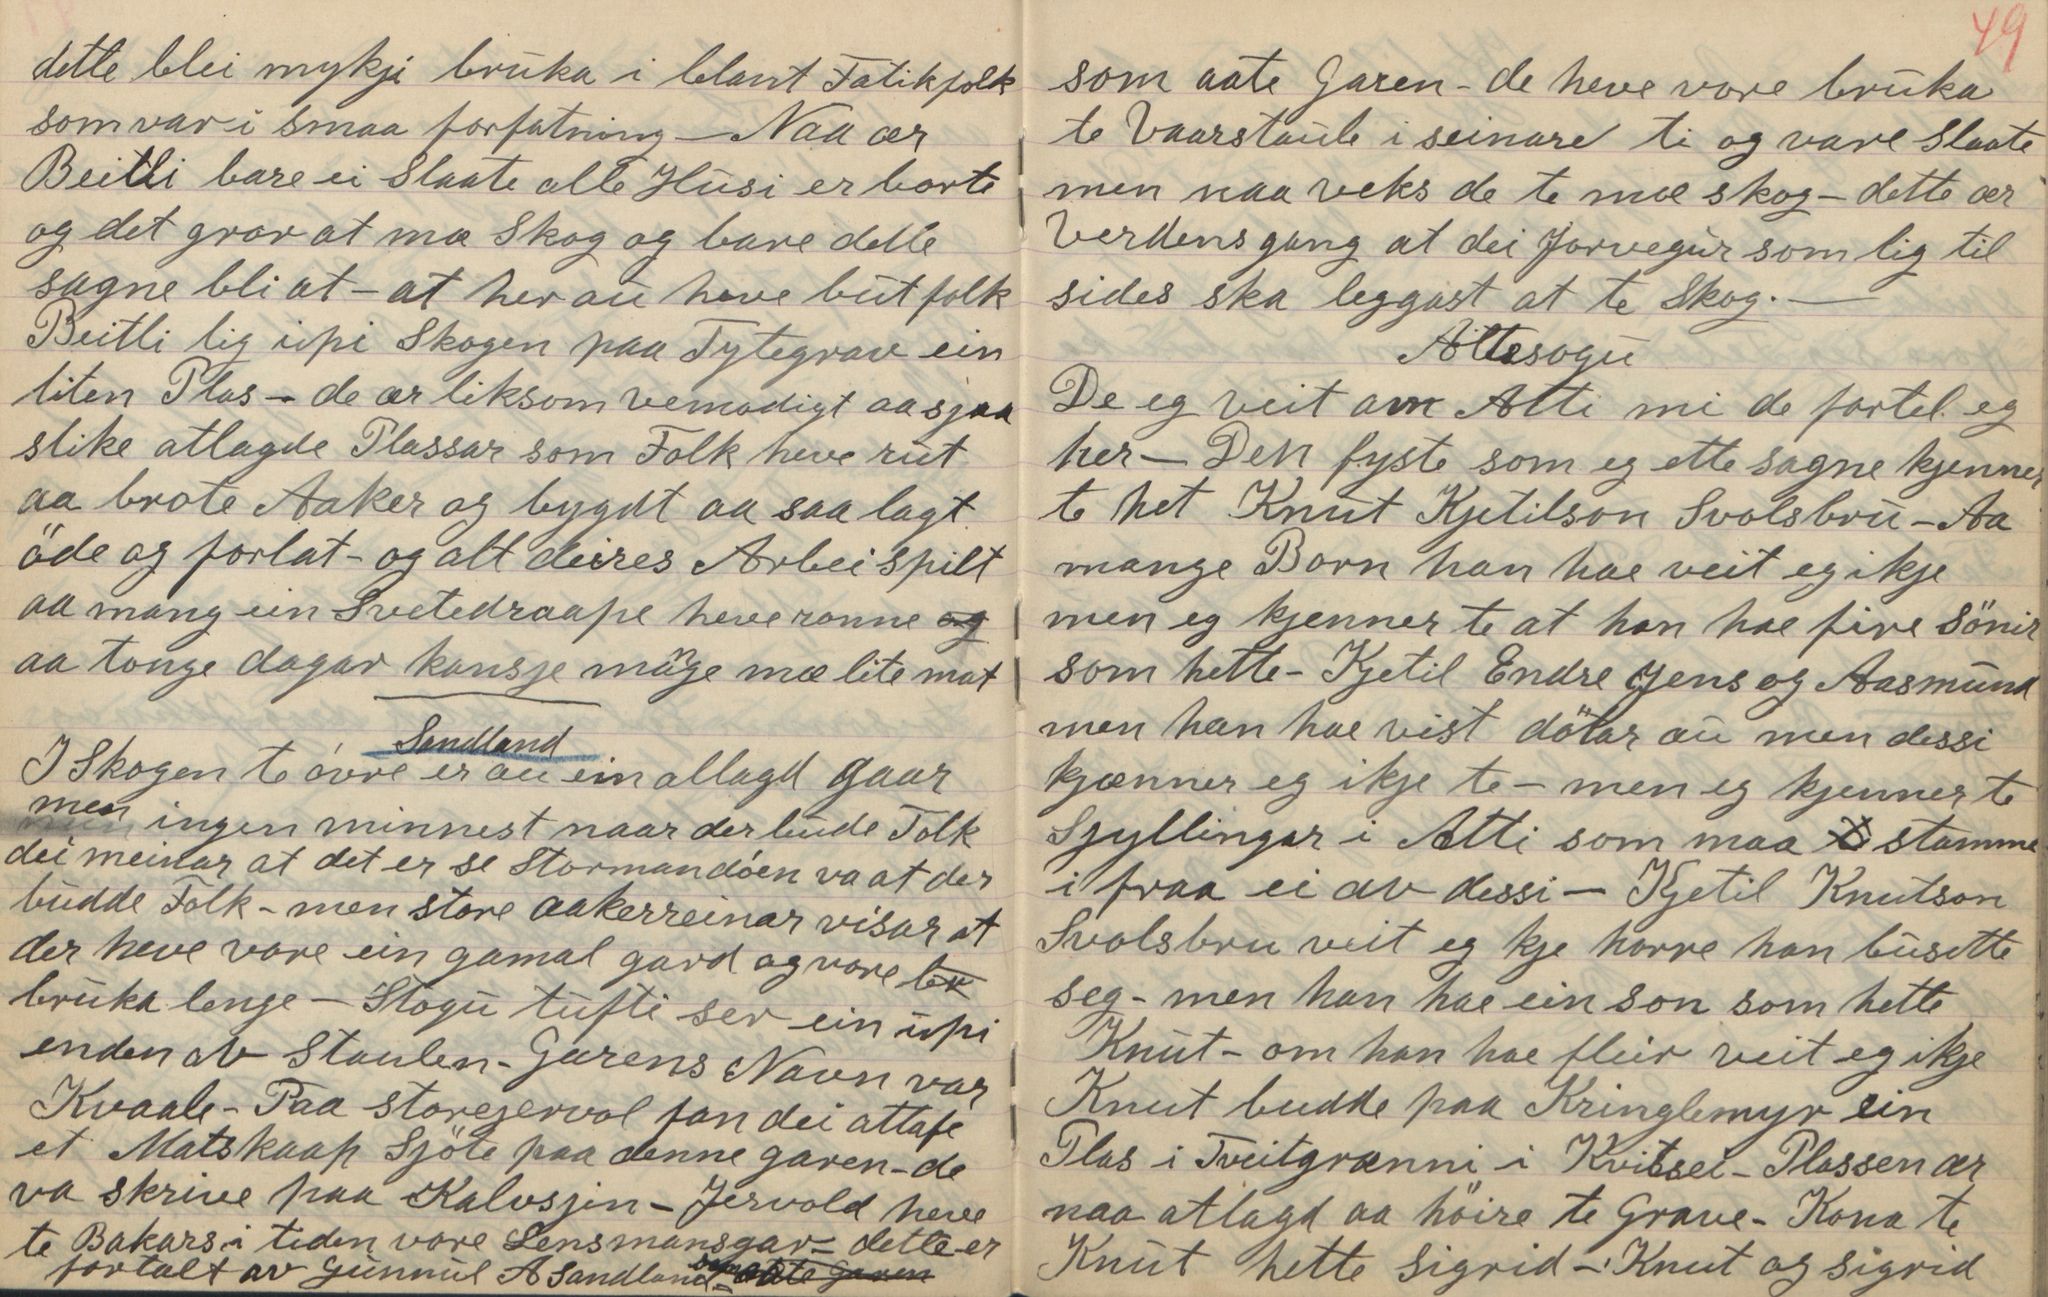 dette blei mykji brüka i blant Fatikfolk
som var i smaa forfatning — Naa ær
Beitli bare ei Slaate alle Hüsi er borte
og det gror at mæ Skog og bare dette
sagne bli at – at her aü heve büt folk
Beitli lig üpi Skogen paa Tytegrav ein
liten Plas – de ær liksom vemodigt aa sjaa
slike atlagde Plassar som Folk heve rüt
aa brote Aaker og bygdt aa saa lagt
öde og forlat – og alt deires Arbei spilt
aa mang ein Svetedraape heve ronne og
aa tonge dagar kansje mange mæ lite mat
Sandland
I Skogen te óvre er aü ein atlagd gaar
men ingen minnest naar der büde Folk
dei meinar at det er se Stormandóen va at der
büdde Folk – men store aakerreinar visar at
der heve vore ein gamal gard og vore
brüka lenge – Stogü tüfti ser ein üpi
enden av Staulen – Garens Navn var
Kvaale – Paa storegervol fan dei attafe
et Matskaap Sjöte paa denne garen – de
va skrive paa Kalvsjin – Jervold heve
te Bakars i tiden vore Lensmansgar – dette er
fortalt av Günnül A Sandland – aate Garen
49
som aate Garen – de heve vore brüka
te Vaarstaule i seinare ti og vare Slaate
men naa veks de te mæ skog – dette ær
Verdensgang at dei Jorvegür som lig til
sides ska leggast at te Skog. —
Attesogü
De eg veit am Atti mi de fortel eg
her — Den fyste som eg ette sagne kjenner
te het Knüt Kjetilson Svolsbrü – Aa
mange Born han hae veit eg ikje
men eg kjenner te at han hae fire Sönir
som hette – Kjetil Endre Jens og Aasmünd
men han hae vist dötar aü men dessi
kjænner eg ikje te – men eg kjenner te
Sjyllingar i Atti som maa stamme
i fraa ei av dessi — Kjetil Knutson
Svolsbru veit eg kje horre han büsette
seg – men han hae ein son som hette
Knüt – om han hae fleir veit eg ikje
Knut budde paa Kringlemyr ein
Plas i Tveitgrænni i Kvitsei – Plassen ær
naa atlagd aa höire te Grave – Kona te
Knüt hette Sigrid – Knut og sigrid